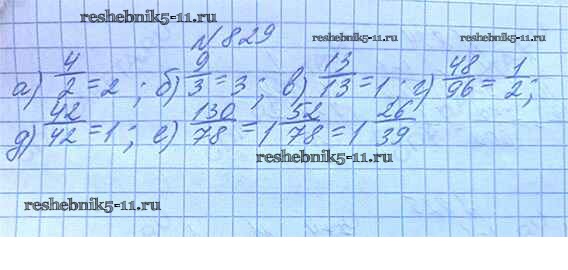 reshebnik5-11.ru
№829
reshebnik5-11.ru reshebnik5-11.ru
а) 4/2 = 2; б) 9/3 = 3; в) 13/13 = 1; г) 48/96 = 1/2;
д) 42/42 = 1; е) 130/78 = 1 52/78 = 1 26/39
reshebnik5-11.ru
reshebnik5-11.ru